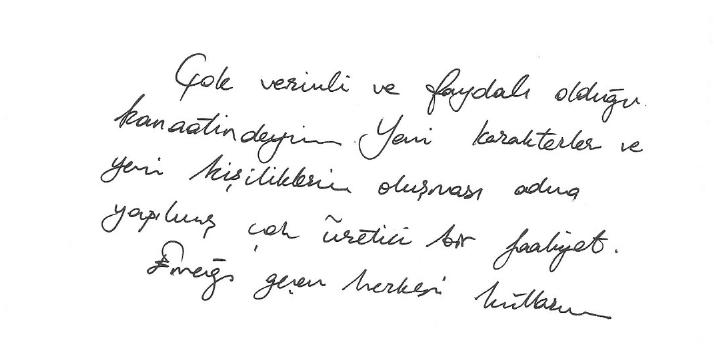 Çok verimli ve faydalı olduğu
kanaatindeyim. Yeni karakterler ve
yeni kişiliklerin oluşması adına
yapılmış çok üretici bir faaliyet.
Emeği geçen herkesi kutlarım